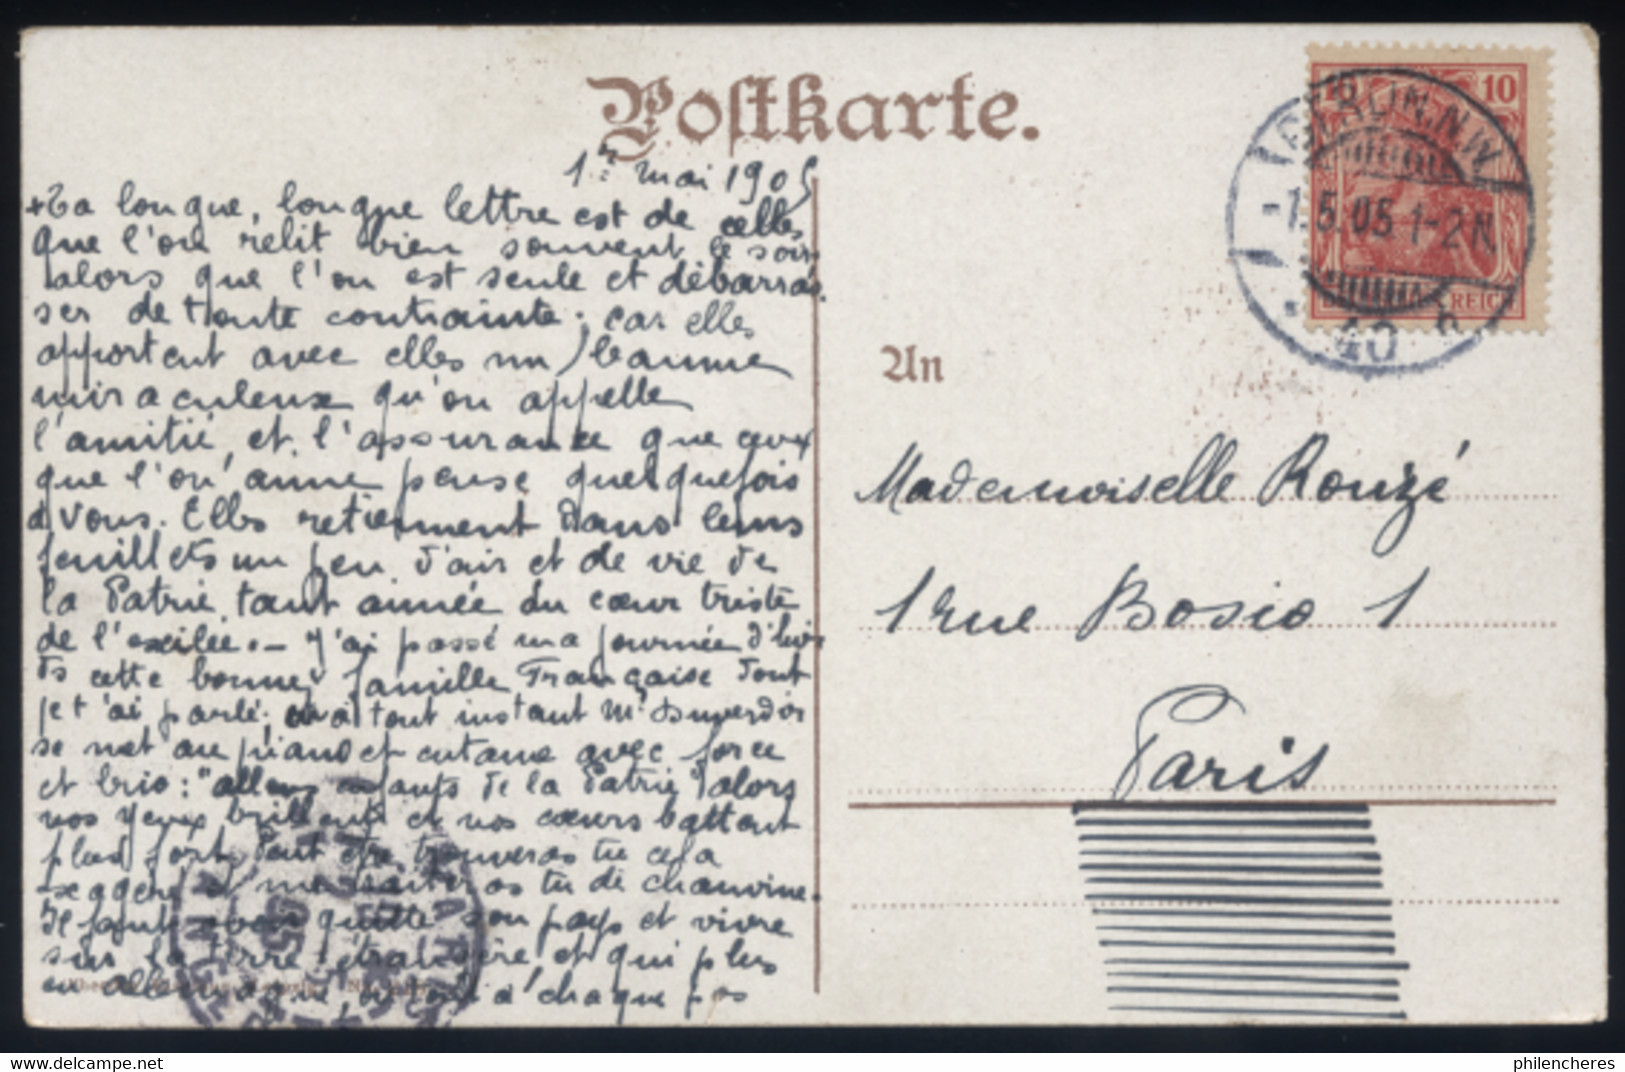 Postkarte.
1er mai 1905
+Ta longue, longue lettre est de celles
que l'on relit bien souvent le soir
alors que l'on est seule et débarras-
ser de toute contrainte; car elles
apportent avec elles un baume
miraculeux qu'on appelle
l'amitié, et l'assurance que ceux
que l'on aime pense quelquefois
à vous. Elles retiennent dans leurs
feuillets un peu d'air et de vie de
la Patrie tant aimée du cœur triste
de l'exilée. - J'ai passé ma journée d'hier
ds cette bonne famille Française dont
je t'ai parlé; à tout instant Mr
se met au piano et entame avec force
et brio: "allons enfants de la Patrie" alors
nos yeux brillent et nos cœurs battent
plus fort. Peut être trouveras tu cela
exagéré et me traiteras tu de chauvine.
Il faut avoir quitté son pays et vivre
sur la terre étrangère et qui plus
en allemagne, où l'on a chaque pas
BERLIN.N.W.
-1.5.05.1-2N.
40 n
10
REICH
An
Mademoiselle Rouzé
1 rue Bosio 1
Paris
05
philencheres